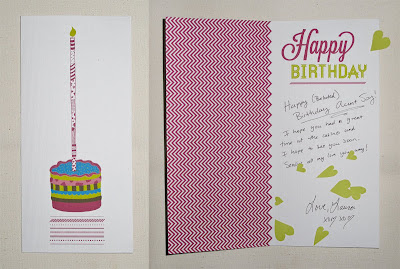 Happy
BIRTHDAY
Happy (Belated)
Birthday Aunt
I hope you had a great
time at the
I hope to see you soon.
Sending all my love your way!
Love,
xoxo